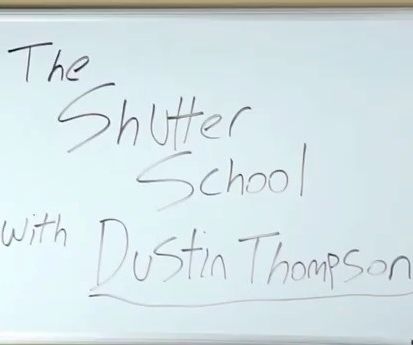 The
Shutter
School
with Dustin Thompson